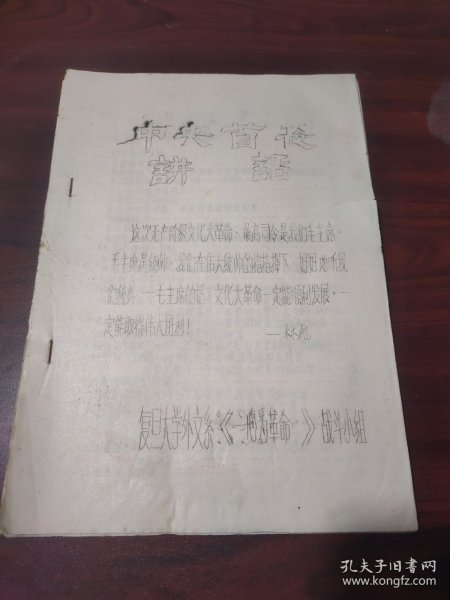 中央首长
讲話
这次无产阶级文化大革命，最高司令是我们毛主席。
毛主席是统帅。我们在伟大统帅的指挥下，好好地听我
们统帅——毛主席的话，文化大革命一定能顺利发展，一
定能取得伟大胜利！
——林彪
复旦大学外文系《一心为革命》战斗小组
孔夫子旧书网
www.kongfz.com